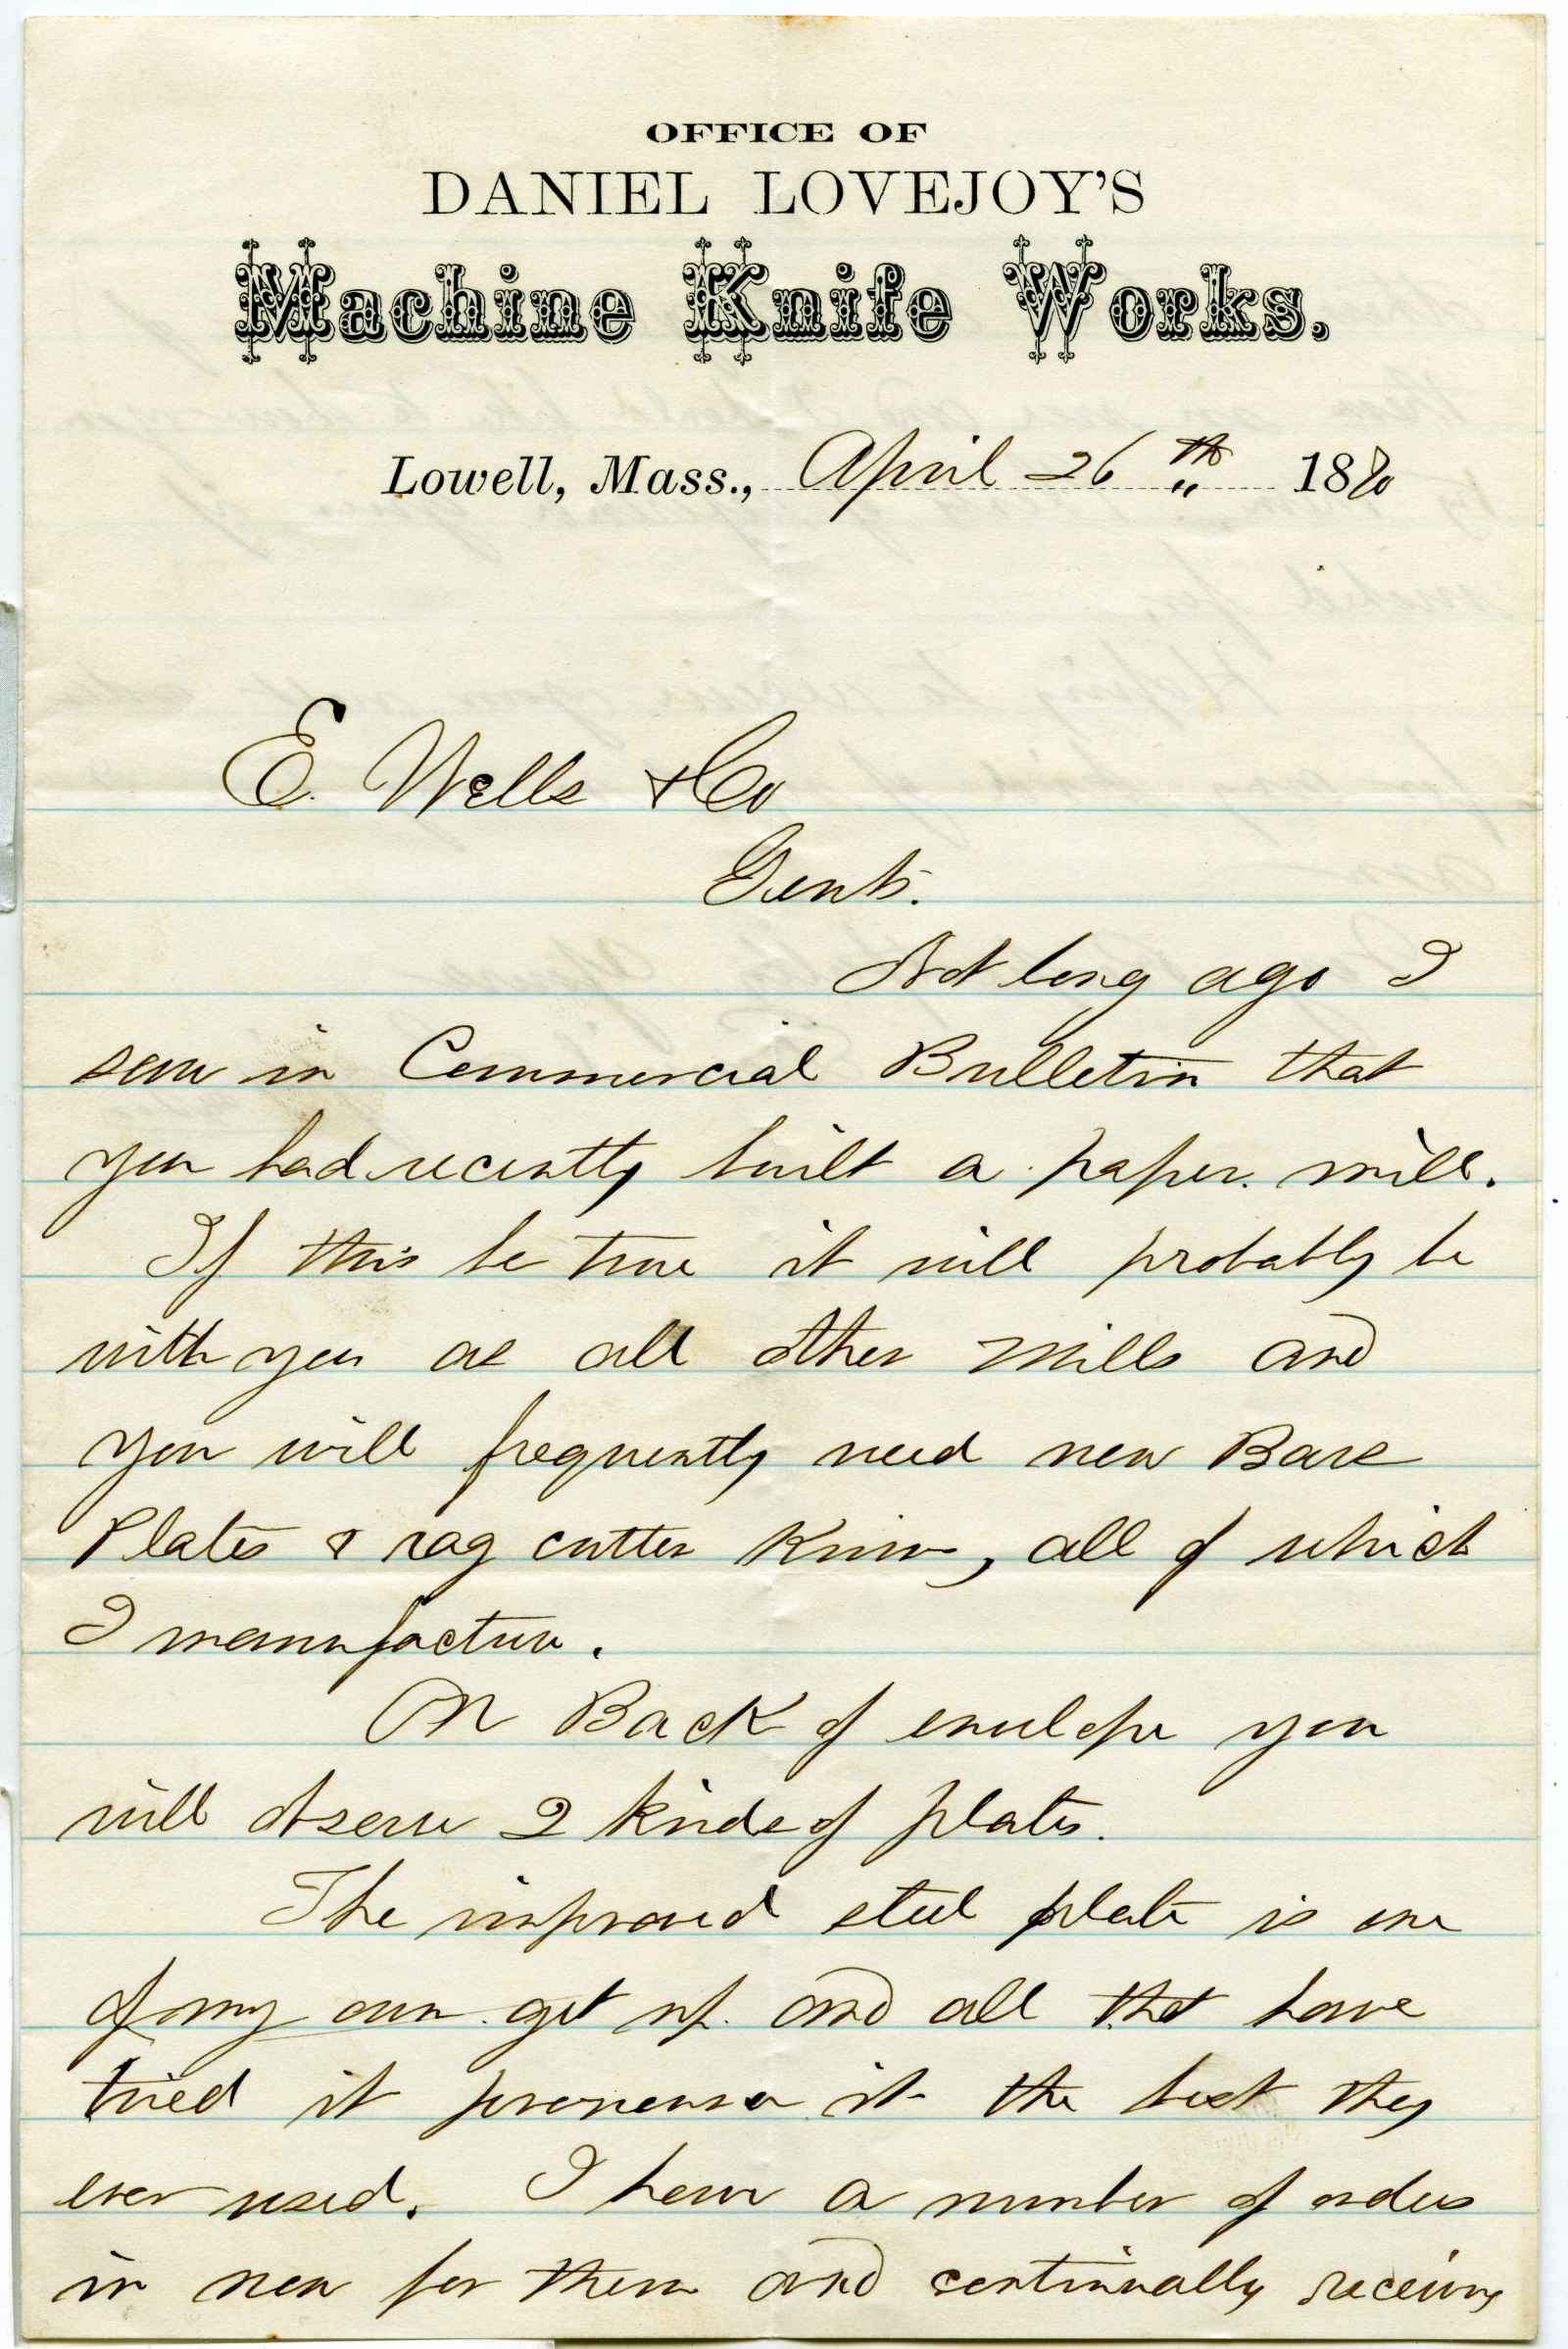 OFFICE OF
DANIEL LOVEJOY'S
Machine Knife Works.
Lowell, Mass., April 26th 1880
E. Wells & Co
Gents.
Not long ago I
saw in Commercial Bulletin that
you had recently built a paper mill.
If this be true it will probably be
with you as all other mills and
you will frequently need new Bars
Plates & rag cutter Knives, all of which
I manufacture.
On Back of envelope you
will observe 2 kinds of plates.
The improved steel plate is one
of my own get up. and all that have
tried it pronounce it the best they
ever used. I have a number of orders
in now for them and continually receiving